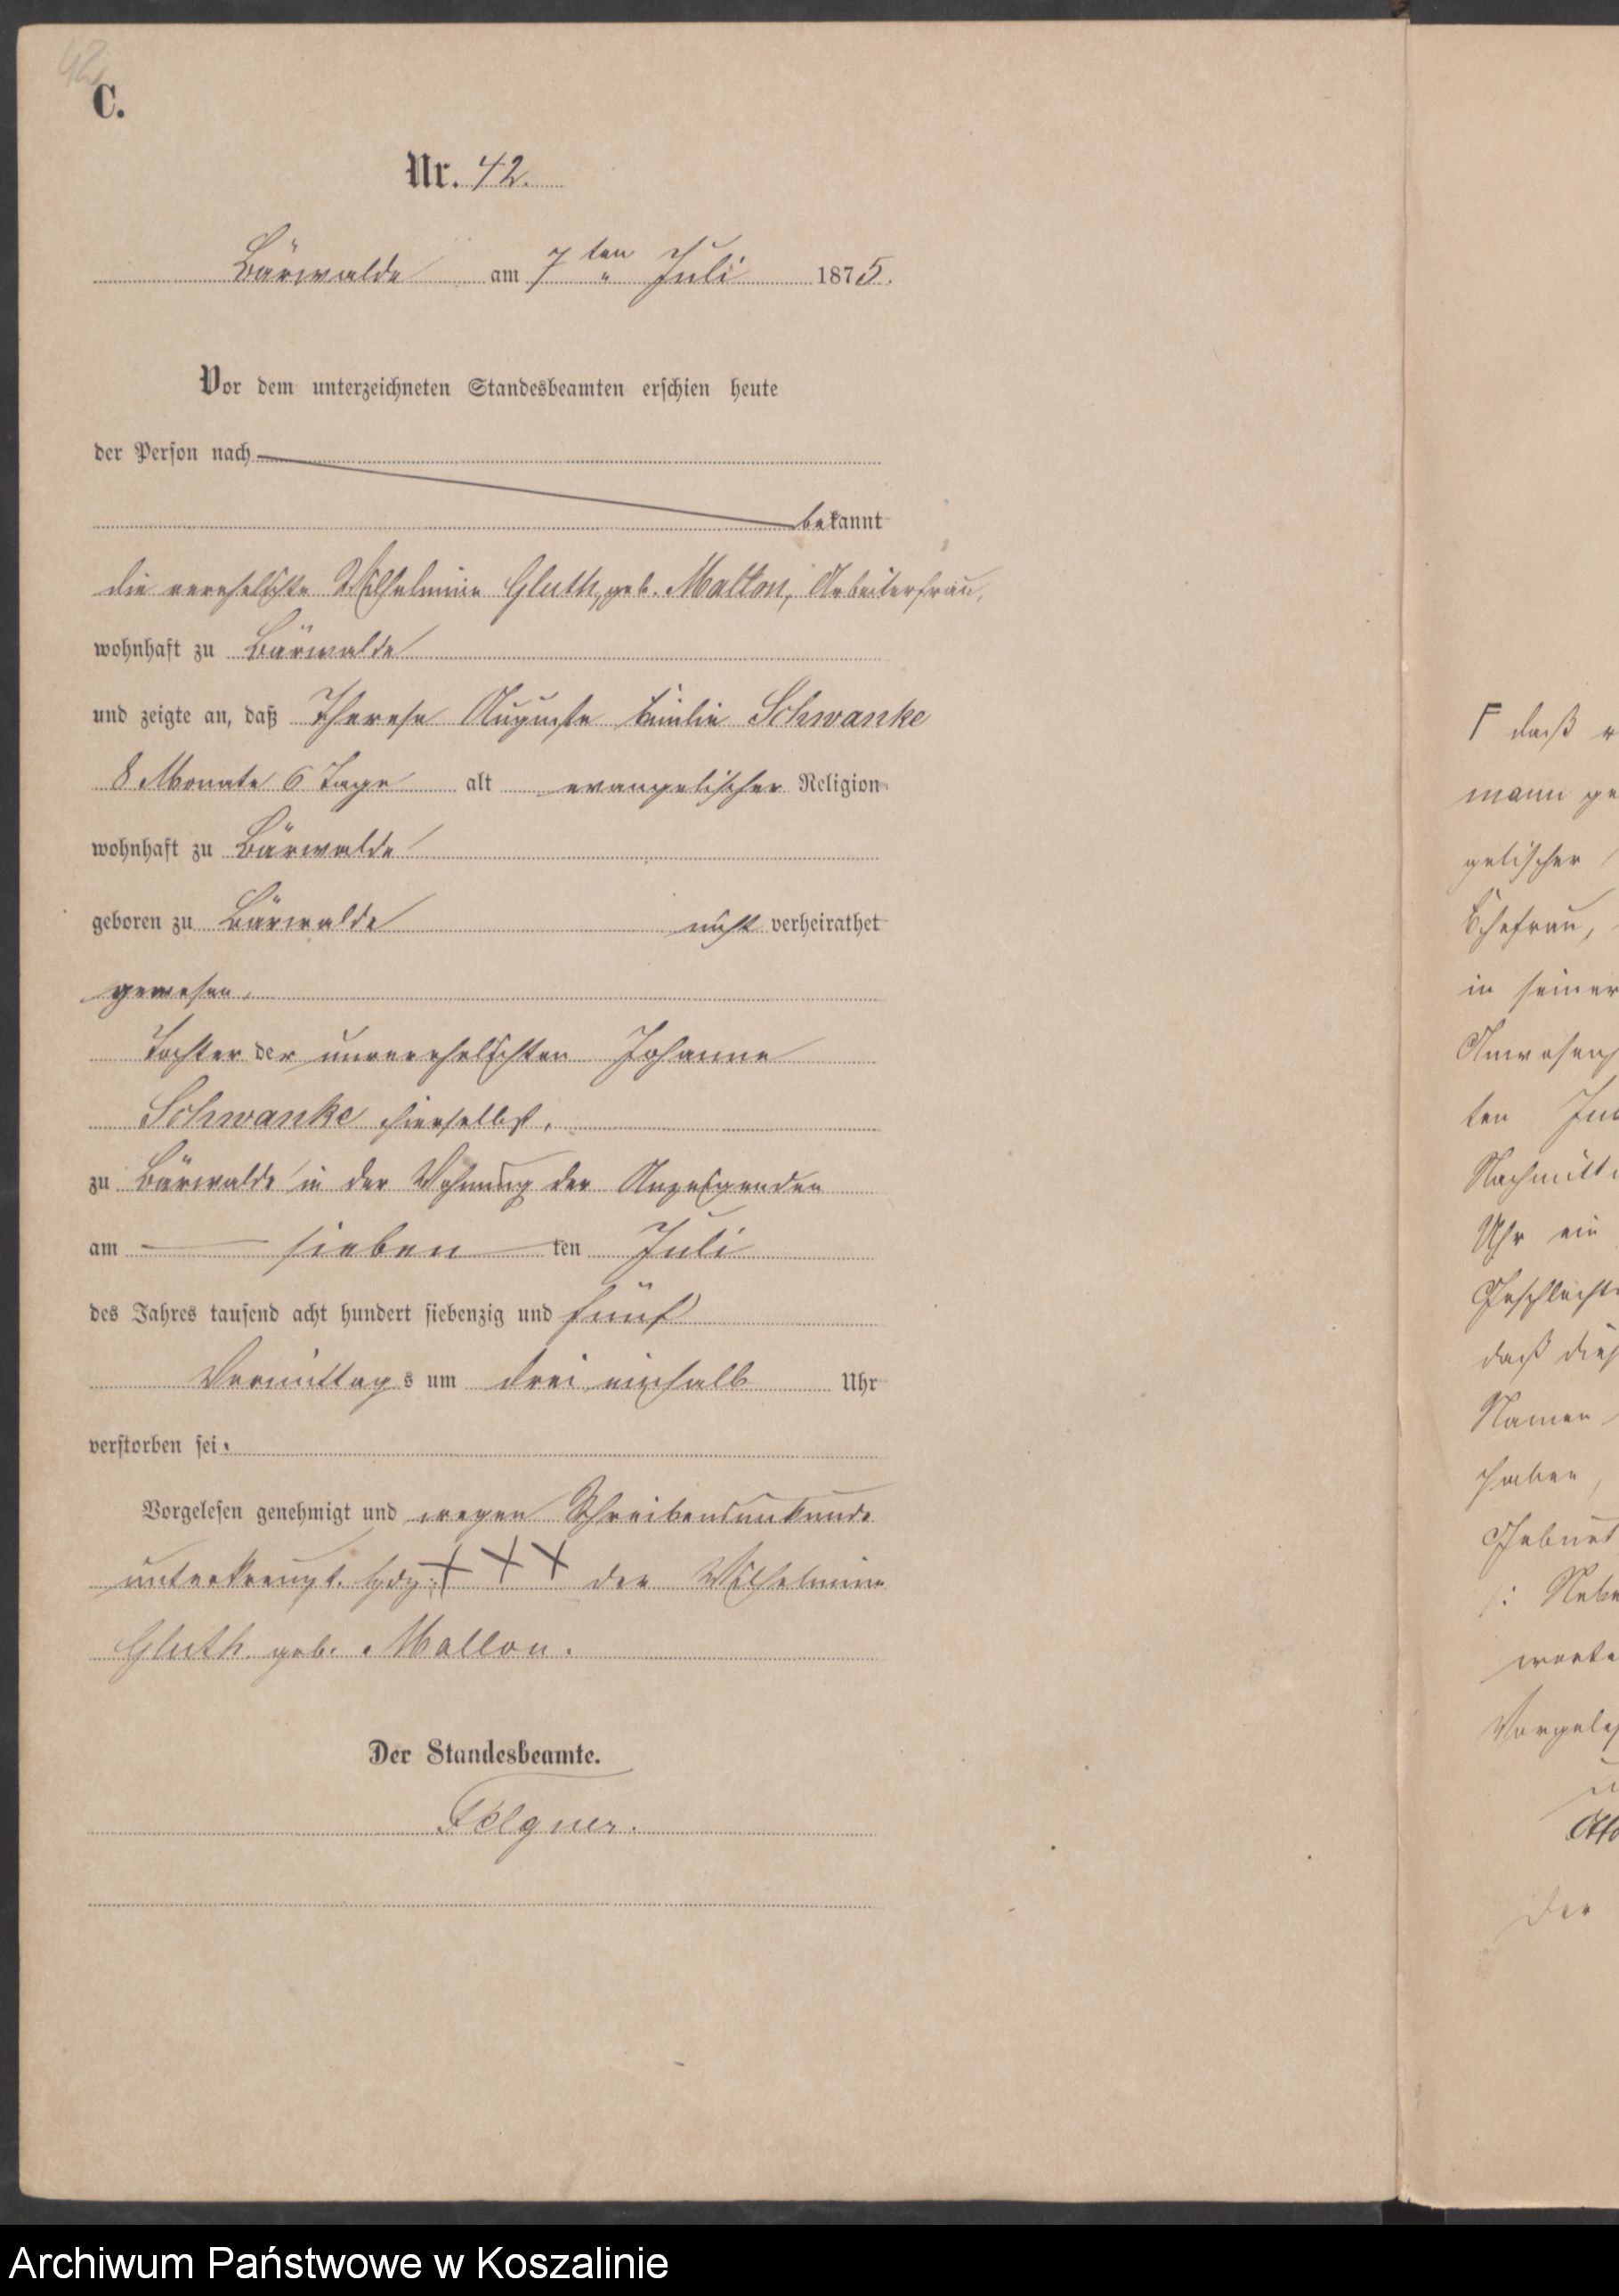 42
C.
Nr. 42.
Bärwalde am 7ten Juli 1875.
Vor dem unterzeichneten Standesbeamten erschien heute
der Person nach
bekannt
die verehelichte Wilhelmine Gluth, geb. Mallon, Arbeiterfrau,
wohnhaft zu Bärwalde
und zeigte an, daß Therese Auguste Emilie Schwanke
8 Monate 6 Tage alt evangelischer Religion
wohnhaft zu Bärwalde
geboren zu Bärwalde nicht verheirathet
gewesen,
Tochter der unverehelichten Johanne
Schwanke hierselbst,
zu Bärwalde in der Wohnung der Anzeigenden
am sieben ten Juli
des Jahres tausend acht hundert siebenzig und fünf
Vormittags um drei einhalb Uhr
verstorben sei.
Vorgelesen genehmigt und wegen Schreibensunkunde
unterkreuzt. Hdz: + + + der Wilhelmine
Gluth geb. Mallon.
Der Standesbeamte.
Felgner.
F daß
mann ge
gelischer
Ehefrau,
in seiner
ten
Uhr ein
daß
Namen
haben,
Geburt
Der
Archiwum Państwowe w Koszalinie